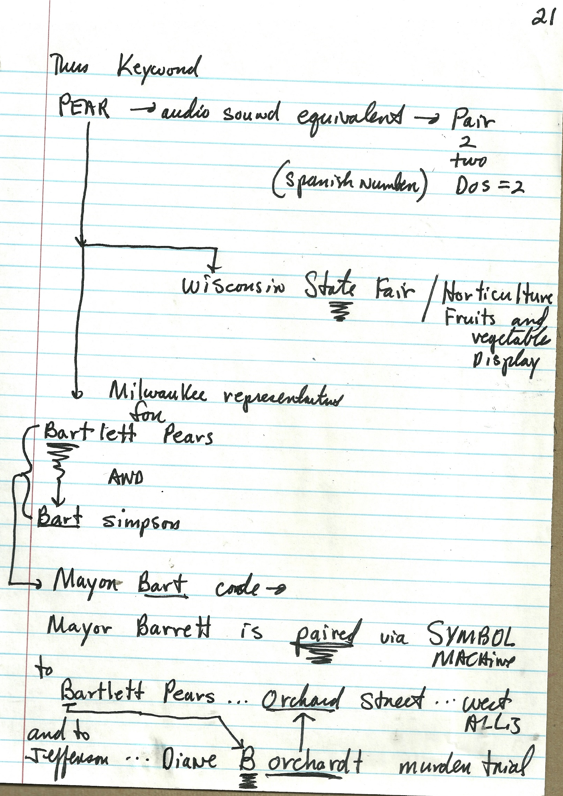 21
Thus Keyword
PEAR → audio sound equivalent → Pair
2
two
(Spanish Number) Dos = 2
Wisconsin State Fair / Horticulture
Fruits and
vegetable
Display
Milwaukee representatus
for
Bartlett Pears
AND
Bart simpson
Mayor Bart code →
Mayor Barrett is paired via SYMBOL
MACHine
to
Bartlett Pears ... Orchard Street ... west
ALLIS
and to
Jefferson ... Diane Borchardt murder trial